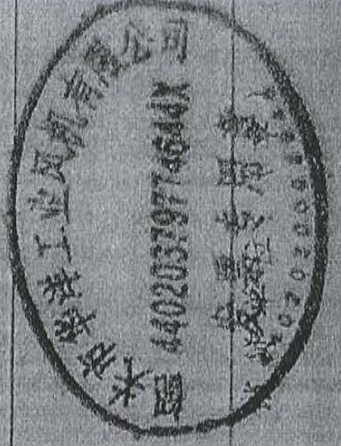 韶关市华珠工业风机有限公司
44020379774644X
发票专用章